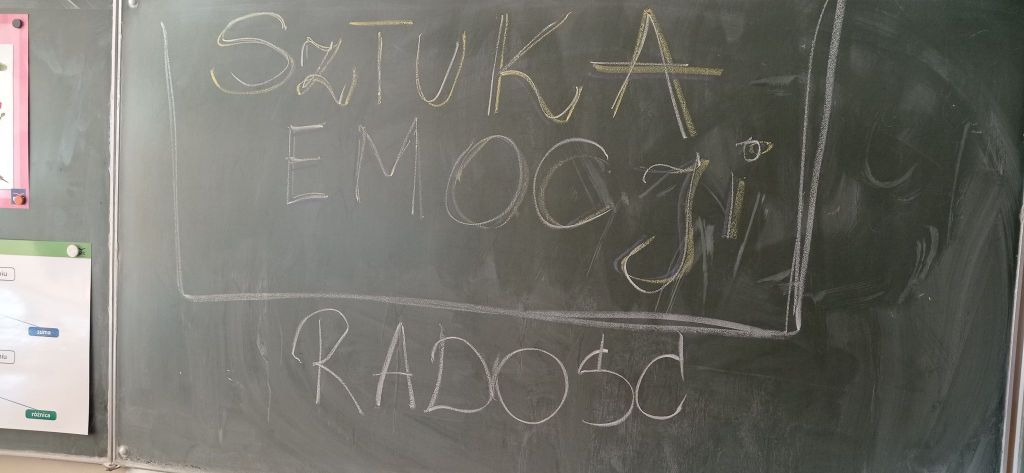 SZTUKA
EMOCji
RADOŚĆ
niu
suma
niu
różnica